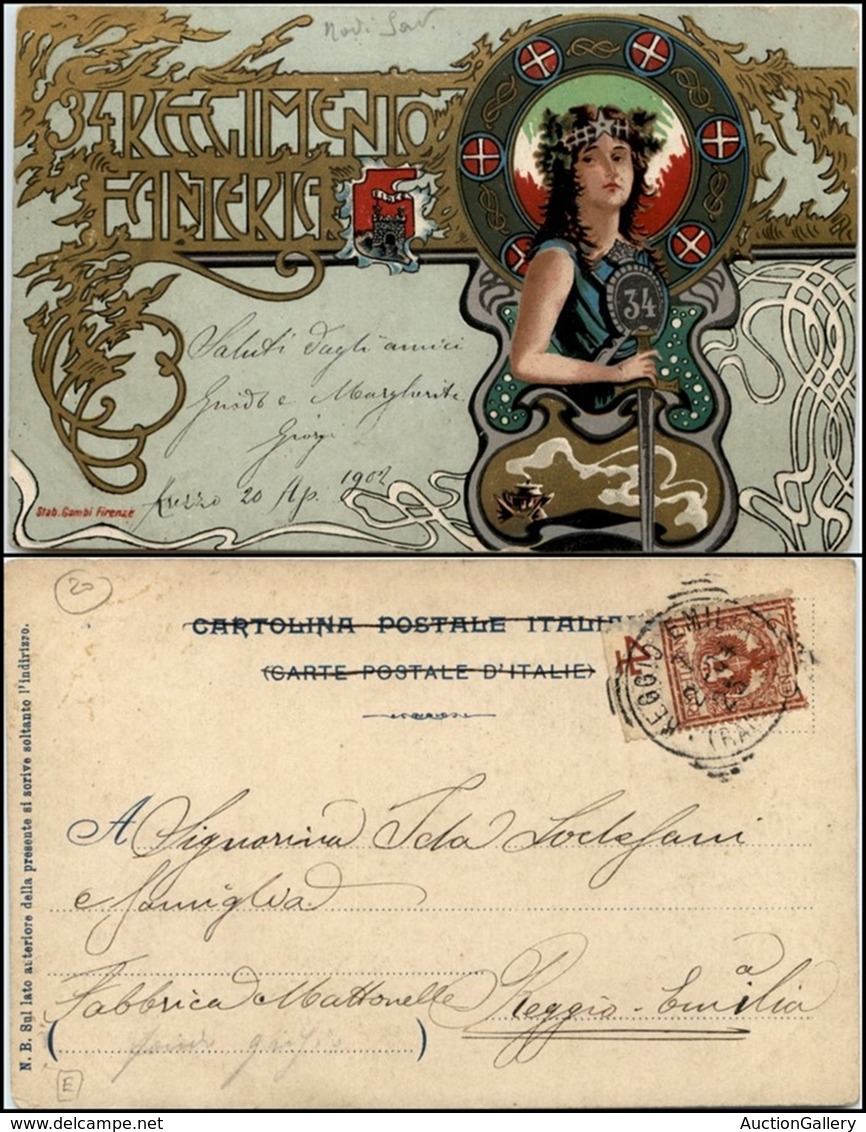 Nodi Sav.
34 REGGIMENTO
FANTERIA
34
Saluti dagli amici
Guido e Margherita
Giorgi
Arezzo 20 Ap. 1902
Stab. Gambi Firenze
20
CARTOLINA POSTALE ITALIANA
(CARTE POSTALE D'ITALIE)
REGGIO EMILIA
N. B. Sul lato anteriore della presente si scrive soltanto l'indirizzo.
A Signorina Ida Lodesani
e famiglia
Fabbrica Mattonelle Reggio-Emilia
a
E
AuctionGallery